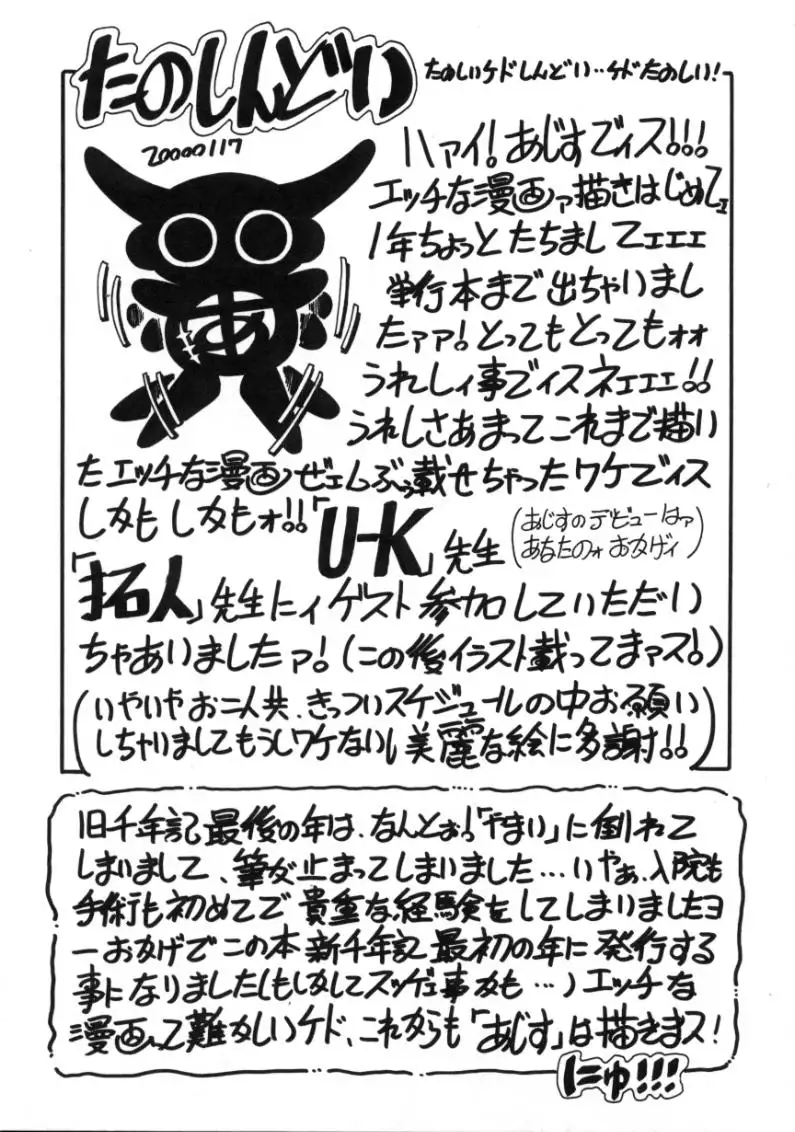 たのしんどい
たのしいケドしんどい‥ケドたのしい!
20000117
あ
ハァイ!あじすでィス!!!
エッチな漫画ァ描きはじめてェ
1年ちょっとたちましてェェェ
単行本まで出ちゃいまし
たァァ!とってもとってもォォ
うれしィ事でィスネェェェ!!
うれしさあまってこれまで描い
たエッチな漫画ぜェんぶゥ載せちゃったワケでィス
しかもしかもォ!!「U-K」先生(あじすのデビューはァ
あなたのォおかげィ)
「拓人」先生にィゲスト参加していただい
ちゃありましたァ!(この後イラスト載ってまァス!)
(いやいやお二人共、きっついスケジュールの中お願い
しちゃいましてもうしワケないい美麗な絵に多謝!!)
旧千年記最後の年は、なんとぉっ「やまい」に倒れて
しまいまして、筆が止まってしまいました…いやぁ、入院も
手術も初めてで貴重な経験をしてしまりましたヨ
ーおかげでこの本新千年記最初の年に発行する
事になりました(もしかしてスッゲェ事かも…)エッチな
漫画って難かしいケド、これからも「あじす」は描きまス!
にゅ!!!